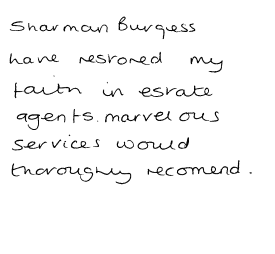 Sharman Burgess
have restored my
faith in estate
agents. marvelous
services would
thoroughly recomend.